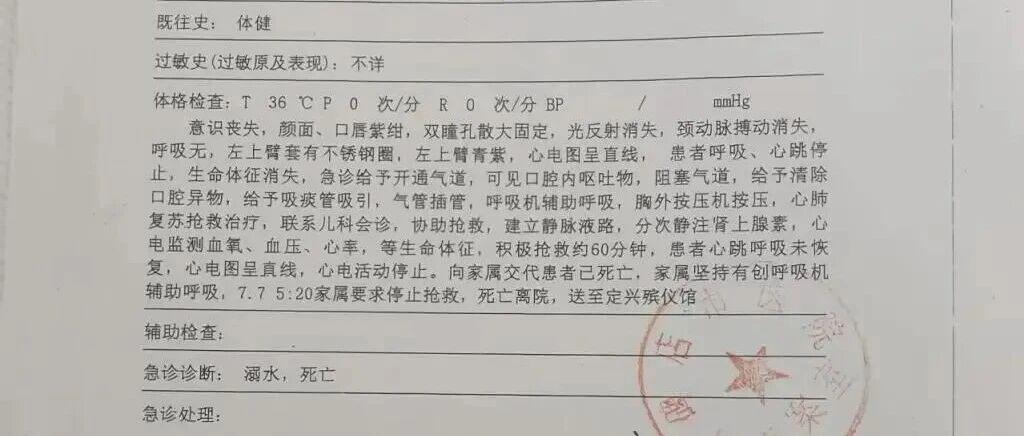 既往史： 体健
过敏史(过敏原及表现)：不详
体格检查：T 36 ℃ P 0 次/分 R 0 次/分 BP / mmHg
意识丧失，颜面、口唇紫绀，双瞳孔散大固定，光反射消失，颈动脉搏动消失，
呼吸无，左上臂套有不锈钢圈，左上臂青紫，心电图呈直线， 患者呼吸、心跳停
止，生命体征消失，急诊给予开通气道，可见口腔内呕吐物，阻塞气道，给予清除
口腔异物，给予吸痰管吸引，气管插管，呼吸机辅助呼吸，胸外按压机按压，心肺
复苏抢救治疗，联系儿科会诊，协助抢救，建立静脉液路，分次静注肾上腺素，心
电监测血氧、血压、心率，等生命体征，积极抢救约60分钟，患者心跳呼吸未恢
复，心电图呈直线，心电活动停止。向家属交代患者已死亡，家属坚持有创呼吸机
辅助呼吸，7.7 5:20家属要求停止抢救，死亡离院，送至定兴殡仪馆
辅助检查：
急诊诊断： 溺水，死亡
急诊处理：
店市医院